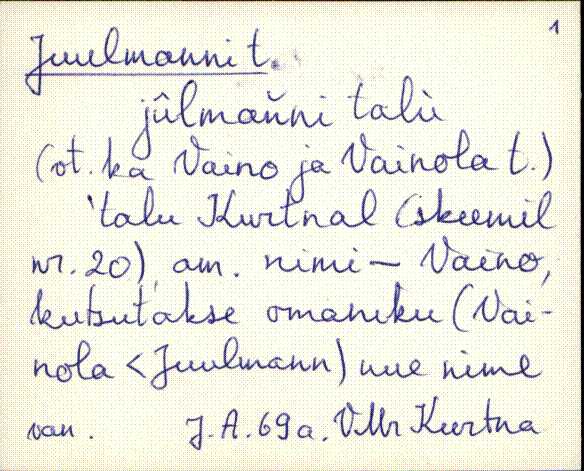 1
Juulmanni t.
jûlmaǹni talù
(ot. ka Vaino ja Vainola t.)
'talu Kurtnal (skeemil
nr. 20), am. nimi – Vaino,
kutsutakse omaniku (Vai-
nola < Juulmann) uue nime
van. J. A. 69 a. VMr Kurtna